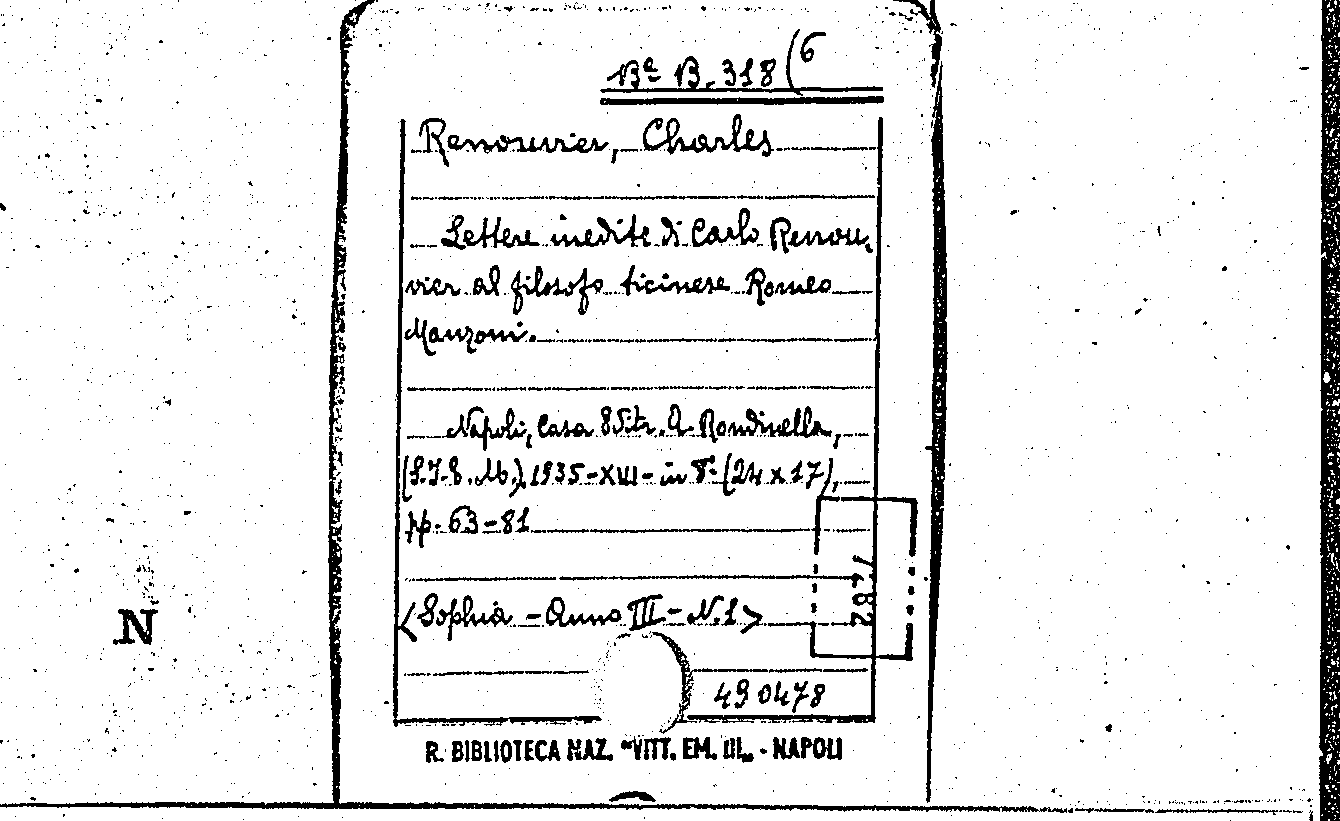 Bª B. 318 (6
Renouvier, Charles
Lettere inedite di Carlo Renou-
vier al filosofo ticinese Romeo
Manzoni.
Napoli, Casa Editr. A. Rondinella,
(S.I.E.M.), 1935-XIII - in 8° (24 x 17),
pp. 63-81
<Sophia - Anno III - N.1>
490478
R. BIBLIOTECA NAZ. "VITT. EM. III„ - NAPOLI
N